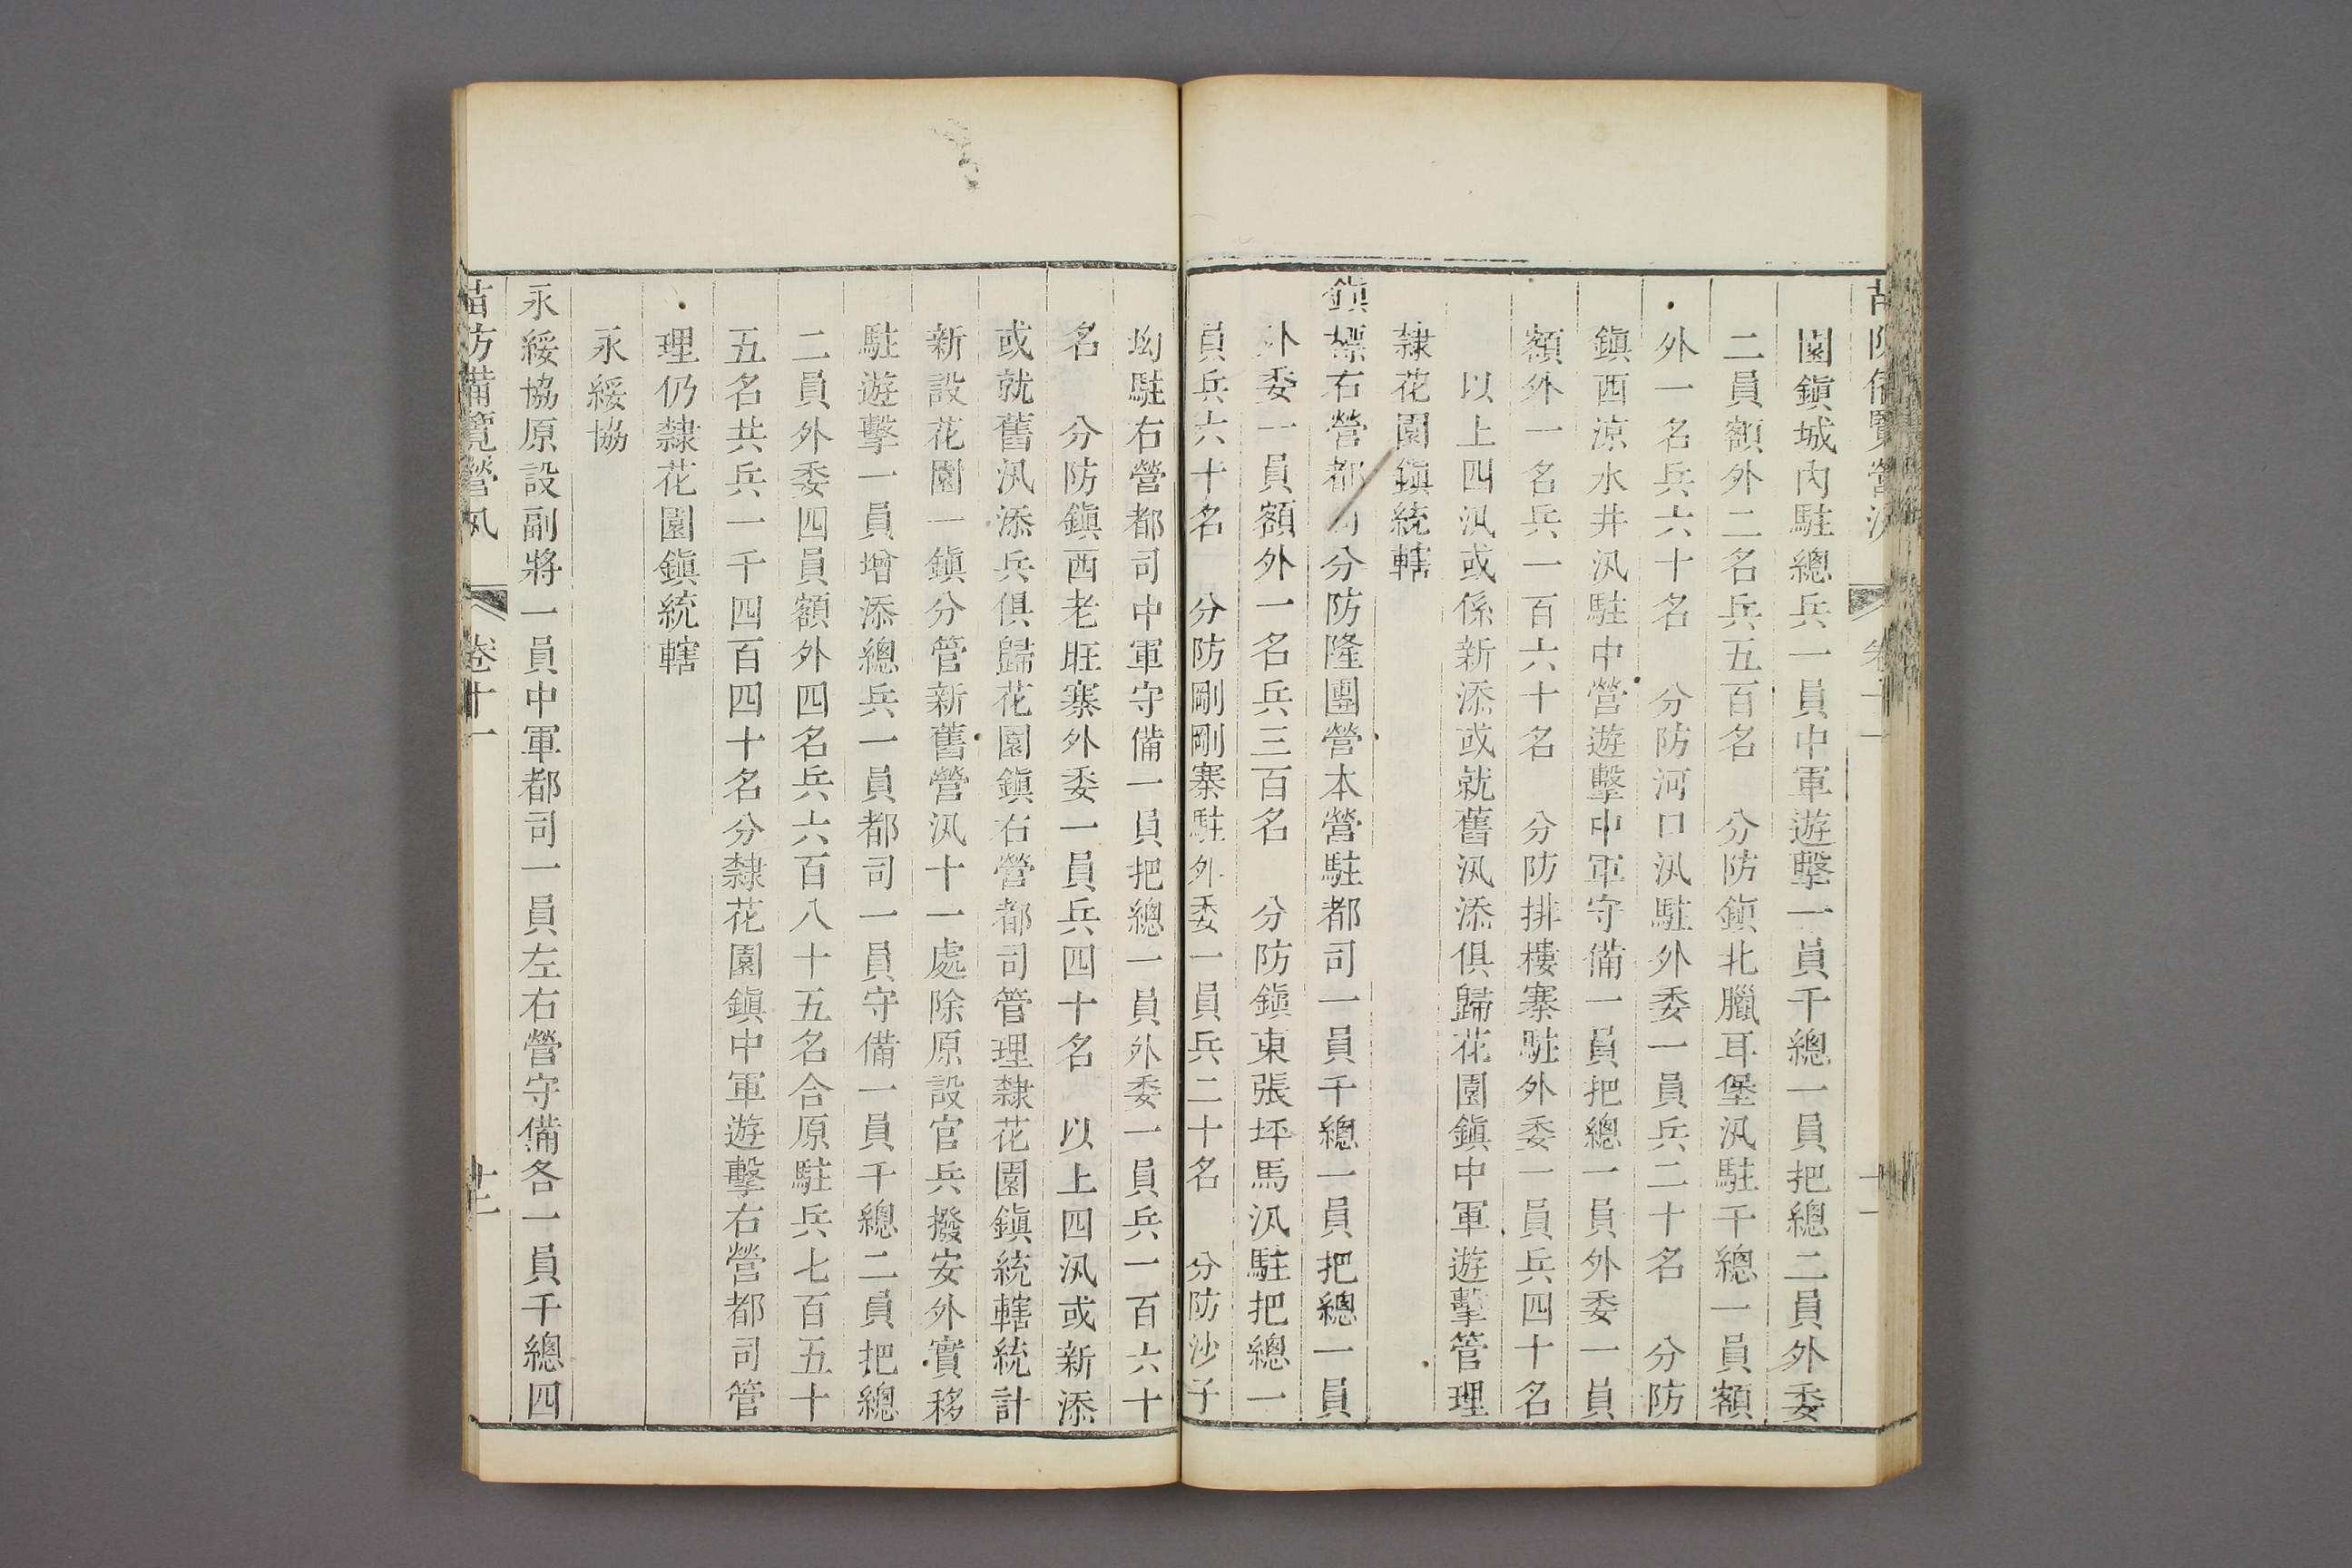 苗防備覽 營汛 卷十一
園鎭城內駐總兵一員中軍遊擊一員千總一員把總二員外委
二員額外二名兵五百名 分防鎭北臘耳堡汛駐千總一員額
外一名兵六十名 分防河口汛駐外委一員兵二十名 分防
鎭西涼水井汛駐中營遊擊中軍守備一員把總一員外委一員
額外一名兵一百六十名 分防排樓寨駐外委一員兵四十名
以上四汛或係新添或就舊汛添俱歸花園鎭中軍遊擊管理
隸花園鎭統轄
鎭標右營都司分防隆團營本營駐都司一員千總一員把總一員
外委一員額外一名兵三百名 分防鎭東張坪馬汛駐把總一
員兵六十名 分防剛剛寨駐外委一員兵二十名 分防沙子
坳駐右營都司中軍守備一員把總一員外委一員兵一百六十
名 分防鎭西老旺寨外委一員兵四十名 以上四汛或新添
或就舊汛添兵俱歸花園鎭右營都司管理隸花園鎭統轄統計
新設花園一鎭分管新舊營汛十一處除原設官兵撥安外實移
駐遊擊一員增添總兵一員都司一員守備一員千總二員把總
二員外委四員額外四名兵六百八十五名合原駐兵七百五十
五名共兵一千四百四十名分隸花園鎭中軍遊擊右營都司管
理仍隸花園鎭統轄
永綏協
永綏協原設副將一員中軍都司一員左右營守備各一員千總四
苗防備覽 營汛 卷十一 十二